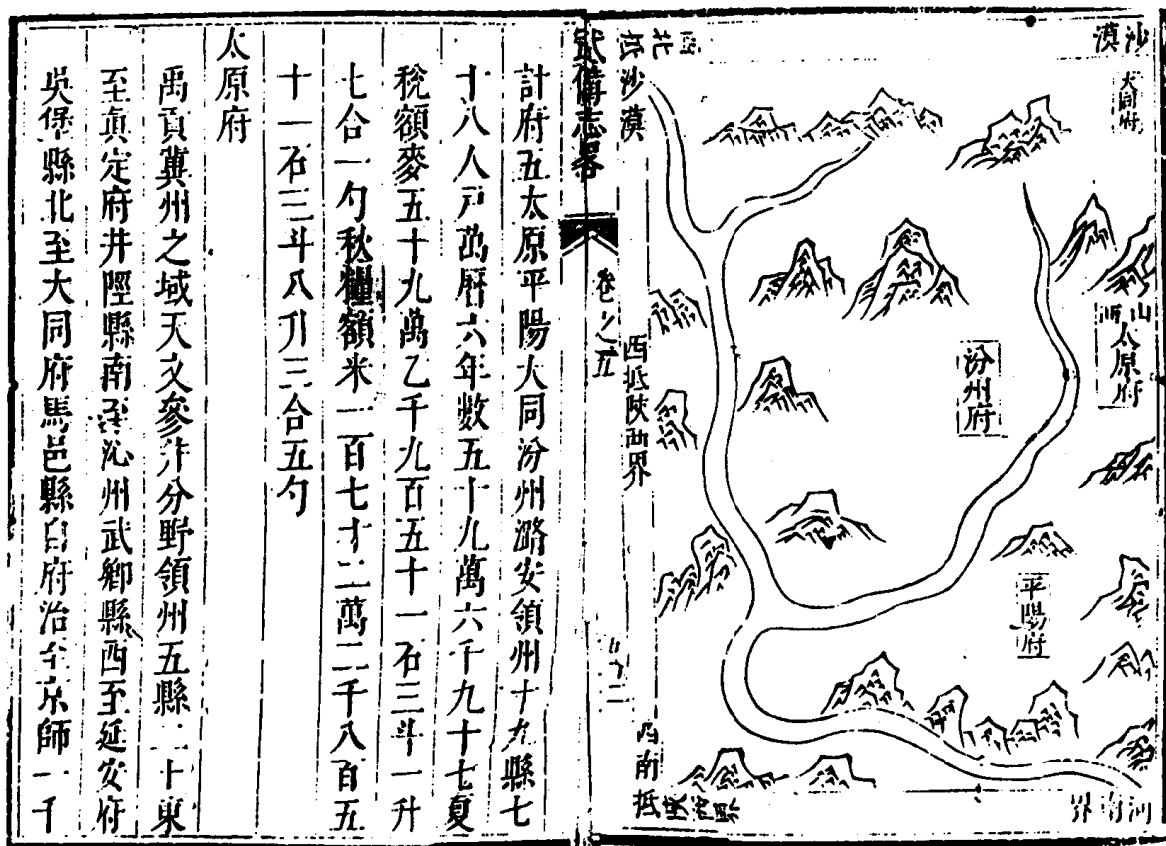 沙漠
大同府
山西太原府
汾州府
平陽府
河南界
沙漠
西抵陝西界
西南抵
武備志畧
卷之五
計府五太原平陽大同汾州潞安領州十九縣七
十八人戸萬曆六年數五十九萬六千九十七夏
稅額麥五十九萬乙千九百五十一石三斗一升
七合一勺秋糧額米一百七十二萬二千八百五
十一石三斗八升三合五勺
太原府
禹貢冀州之域天文參井分野領州五縣二十東
至眞定府井陘縣南至沁州武鄉縣西至延安府
吳堡縣北至大同府馬邑縣自府治至京師一千